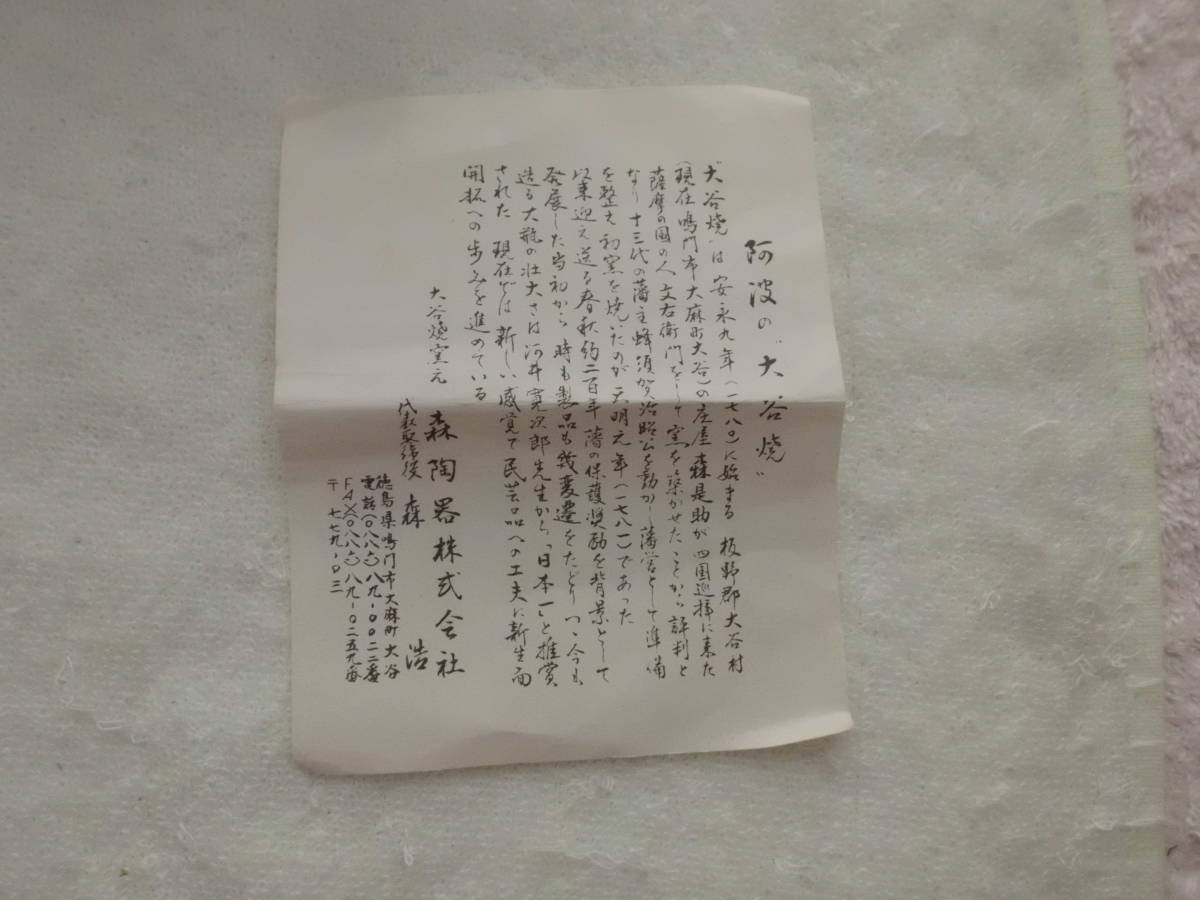 阿波の〝大谷焼〟
〝大谷焼〟は 安永九年(一七八〇)に始まる 板野郡大谷村
(現在鳴門市大麻町大谷)の庄屋 森是助が 四国巡拝に来た
薩摩の国の人 文右衛門をして 窯を築かせたことから 評判と
なり 十三代の藩主蜂須賀治昭公を動かし 藩営として準備
を整え 初窯を焼いたのが 天明元年(一七八一)であった
以来迎え送る春秋約二百年 藩の保護奨励を背景として
発展した当初から 時も製品も幾変遷をたどりつゝ今も
造る大瓶の壮大さは 河井寛次郎先生から「日本一」と推賞
された 現在では 新しい感覚で 民芸品への工夫に新生面
開拓への歩みを進めている
大谷焼窯元 森陶器株式会社
代表取締役 森 浩
徳島県鳴門市大麻町大谷
電話(〇八八六)八九-〇〇二二番
FAX(〇八八六)八九-〇二五九番
〒七七九-〇三